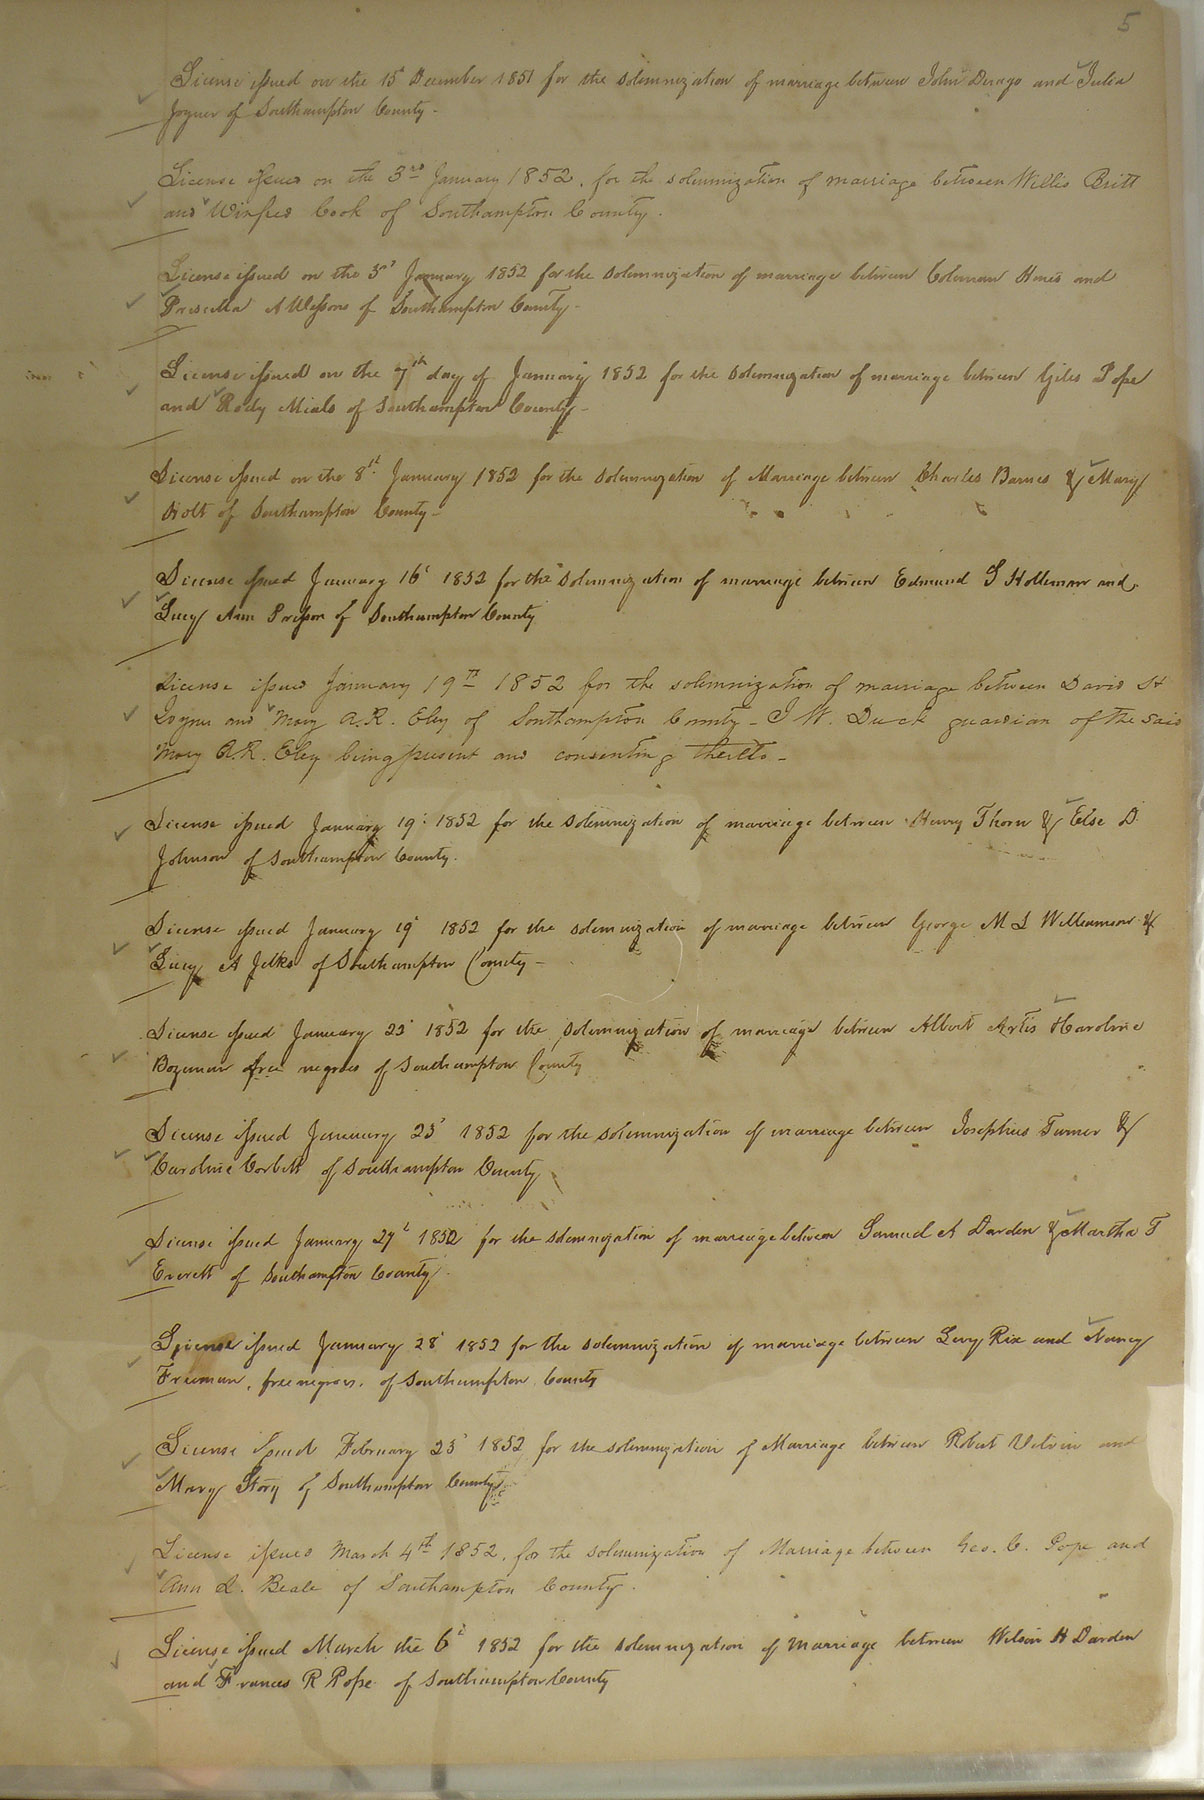 5
License issued on the 15th December 1851 for the solemnization of marriage between John Drago and Julia
Joyner of Southampton County.
License issued on the 3rd January 1852, for the solemnization of marriage between Willis Britt
and Winfred Cook of Southampton County.
License issued on the 5th January 1852 for the solemnization of marriage between Coleman and
Priscilla A Wessons of Southampton County.
License issued on the 7th day of January 1852 for the solemnization of marriage between Giles Pope
and Rody Mials of Southampton County-
License issued on the 8th January 1852 for the solemnization of Marriage between Charles Barnes & Mary
Holt of Southampton County-
License issued January 16th 1852 for the solemnization of marriage between Edmund S Holleman and
Lucy Ann of Southampton County
License issued January 19th 1852 for the solemnization of marriage between David H
Joyner and Mary A.R. Eley of Southampton County - J W. Duck guardian of the said
Mary A.R. Eley being present and consenting thereto-
License issued January 19th 1852 for the solemnization of marriage between Henry Thorn & Else D
Johnson of Southampton County.
License issued January 19th 1852 for the solemnization of marriage between George M L Williamson &
Lucy A Jelks of Southampton County-
License issued January 23d 1852 for the solemnization of marriage between Albert Artis & Caroline
Bozeman free negroes of Southampton County
License issued January 25th 1852 for the solemnization of marriage between Josephus Turner &
Caroline Corbett of Southampton County
License issued January 27th 1852 for the solemnization of marriage between Samuel A Darden & Martha T
Everett of Southampton County.
License issued January 28th 1852 for the solemnization of marriage between Levy Rix and Nancy
Freeman, free negroes, of Southampton County
License issued February 23d 1852 for the solemnization of Marriage between Robert and
Mary Story of Southampton County
License issued March 4th 1852, for the solemnization of Marriage between Geo. C. Pope and
Ann L. Beale of Southampton County.
License issued March the 6th 1852 for the solemnization of Marriage between Wilson H Darden
and Frances R Pope of Southampton County